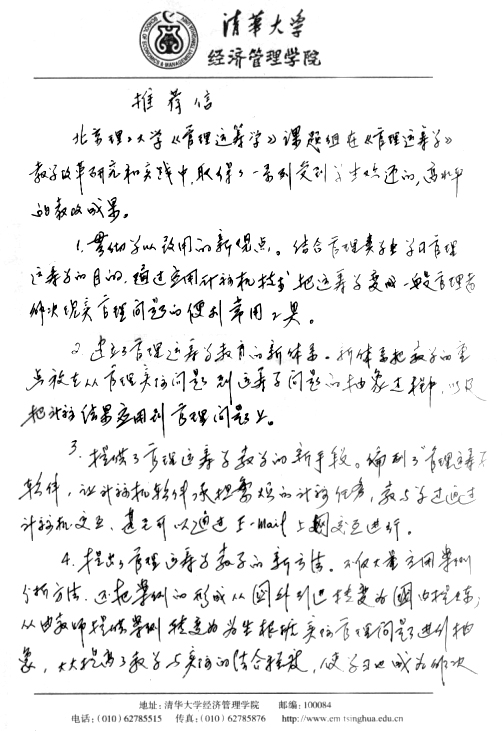 清华大学
经济管理学院
推荐信
北京理工大学《管理运筹学》课题组在《管理运筹学》
教学改革研究和实践中,取得了一系列受到学生欢迎的,高水平
的教改成果。
1.贯彻学以致用的新观点。结合管理类专业学习管理
运筹学的目的,通过应用计算机技术把运筹学变成一般管理者
解决现实管理问题的便利常用工具。
2.建立了管理运筹学教育的新体系。新体系把教学的重
点放在从管理实际问题到运筹学问题的抽象过程中,以及
把计算结果应用到管理问题上。
3.提供了管理运筹学教学的新手段。编制了"管理运筹学
软件,让计算机软件承担繁烦的计算任务,教与学过程通过
计算机交互、甚至可以通过E-mail上网交互进行。
4.提出了管理运筹学教学的新方法。不仅大量应用案例
分析方法,还把案例的形成从国外引进转变为国内提炼;
从由教师提供案例转变为学生根据实际管理问题进行抽
象,大大提高了教学与实际的结合程度,使学习也成为解决
地址:清华大学经济管理学院 邮编:100084
电话:(010)62785515 传真:(010)62785876 http://www.em.tsinghua.edu.cn